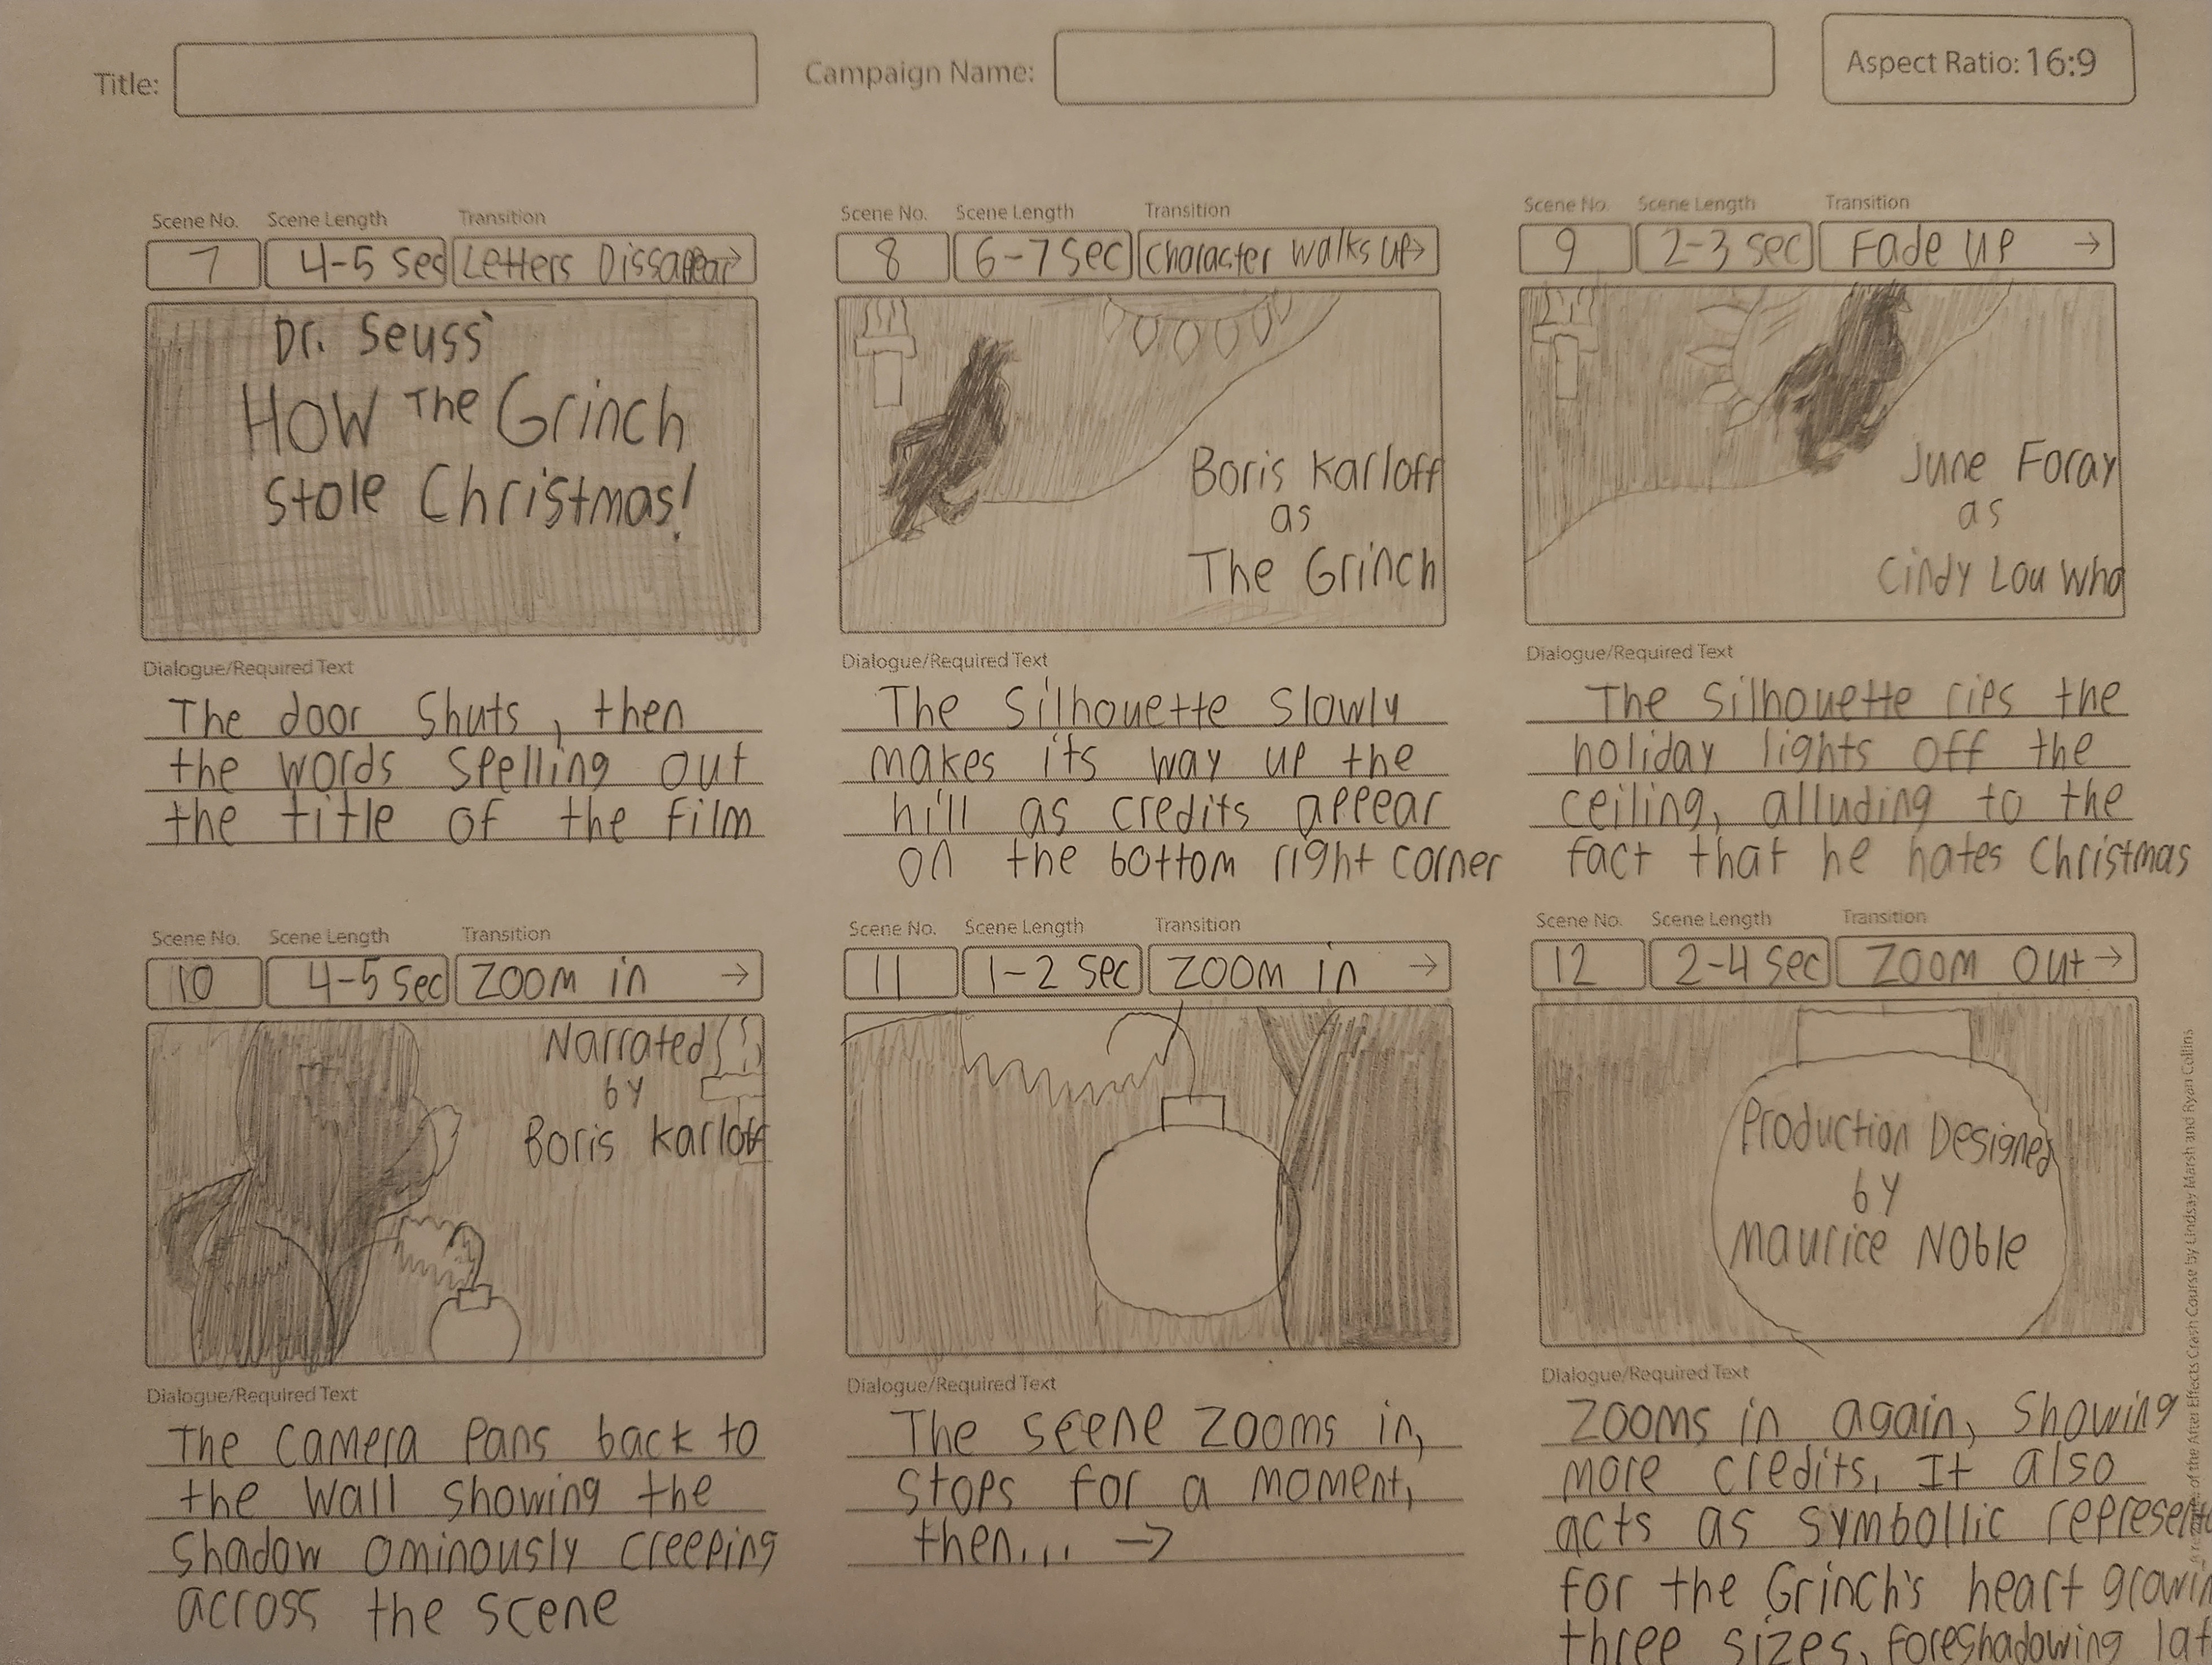 Title:
Campaign Name:
Aspect Ratio: 16:9
Scene No. Scene Length Transition
7 4-5 sec Letters Dissappear →
Dr. Seuss'
How The Grinch
Stole Christmas!
Dialogue/Required Text
The door shuts, then
the words spelling out
the title of the film
Scene No. Scene Length Transition
8 6-7 sec Character walks up→
Boris Karloff
as
The Grinch
Dialogue/Required Text
The silhouette slowly
makes its way up the
hill as credits appear
on the bottom right corner
Scene No. Scene Length Transition
9 2-3 sec Fade up →
June Foray
as
Cindy Lou Who
Dialogue/Required Text
The silhouette rips the
holiday lights off the
ceiling, alluding to the
fact that he hates Christmas
Scene No. Scene Length Transition
10 4-5 sec Zoom in →
Narrated
by
Boris Karloff
Dialogue/Required Text
The camera pans back to
the wall showing the
shadow ominously creeping
across the scene
Scene No. Scene Length Transition
11 1-2 sec Zoom in →
Dialogue/Required Text
The scene zooms in,
stops for a moment,
then... →
Scene No. Scene Length Transition
12 2-4 sec Zoom out →
Production Designed
by
Maurice Noble
Dialogue/Required Text
Zooms in again, showing
more credits, It also
acts as symbollic
for the Grinch's heart
three sizes, foreshadowing
of the After Effects Crash Course by Lindsay Marsh and Ryan Collins